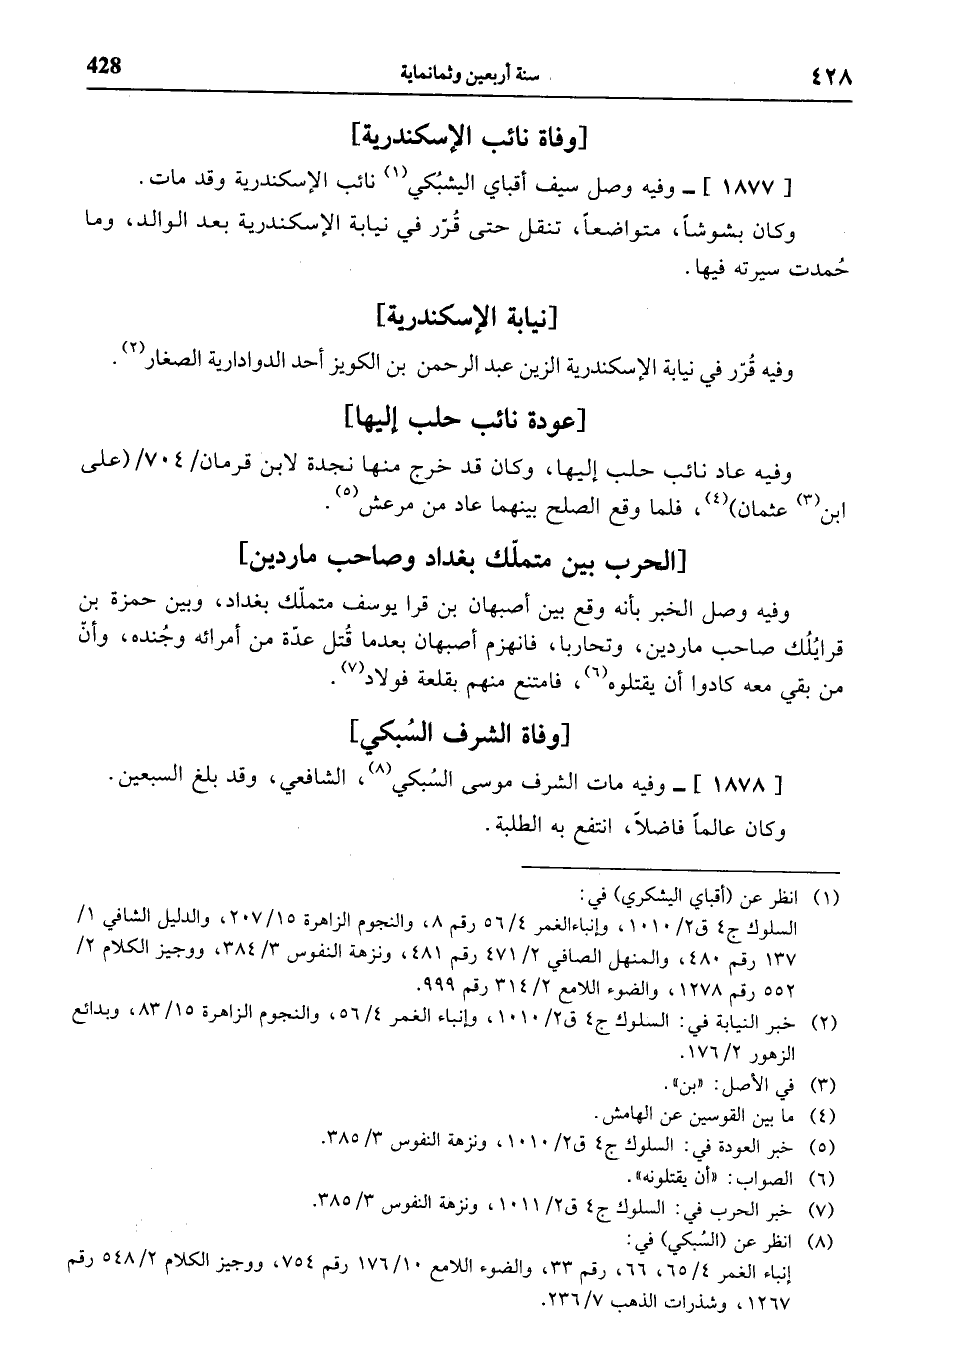 ٤٢٨ سنة أربعين وثمانماية 428
[وفاة نائب الإسكندرية]
[ ١٨٧٧ ] ـ وفيه وصل سيف أقباي اليشبُكي(١) نائب الإسكندرية وقد مات.
وكان بشوشاً، متواضعاً، تنقل حتى قُرّر في نيابة الإسكندرية بعد الوالد، وما
حُمدت سيرته فيها.
[نيابة الإسكندرية]
وفيه قُرّر في نيابة الإسكندرية الزين عبد الرحمن بن الكويز أحد الدوادارية الصغار(٢).
[عودة نائب حلب إليها]
وفيه عاد نائب حلب إليها، وكان قد خرج منها نجدة لابن قرمان/٧٠٤/ (على
ابن(٣) عثمان)(٤)، فلما وقع الصلح بينهما عاد من مرعش(٥).
[الحرب بين متملّك بغداد وصاحب ماردين]
وفيه وصل الخبر بأنه وقع بين أصبهان بن قرا يوسف متملّك بغداد، وبين حمزة بن
قرايُلُك صاحب ماردين، وتحاربا، فانهزم أصبهان بعدما قُتل عدّة من أمرائه وجُنده، وأنّ
من بقي معه كادوا أن يقتلوه(٦)، فامتنع منهم بقلعة فولاد(٧).
[وفاة الشرف السُبكي]
[ ١٨٧٨ ] ـ وفيه مات الشرف موسى السُبكي(٨)، الشافعي، وقد بلغ السبعين.
وكان عالماً فاضلاً، انتفع به الطلبة.
(١) انظر عن (أقباي اليشكري) في:
السلوك ج٤ ق٢/ ١٠١٠، وإنباءالغمر ٤/ ٥٦ رقم ٨، والنجوم الزاهرة ١٥/ ٢٠٧، والدليل الشافي ١/
١٣٧ رقم ٤٨٠، والمنهل الصافي ٢/ ٤٧١ رقم ٤٨١، ونزهة النفوس ٣/ ٣٨٤، ووجيز الكلام ٢/
٥٥٢ رقم ١٢٧٨، والضوء اللامع ٢/ ٣١٤ رقم ٩٩٩.
(٢) خبر النيابة في: السلوك ج٤ ق٢/ ١٠١٠، وإنباء الغمر ٤/ ٥٦، والنجوم الزاهرة ١٥/ ٨٣، وبدائع
الزهور ٢/ ١٧٦.
(٣) في الأصل: «بن».
(٤) ما بين القوسين عن الهامش.
(٥) خبر العودة في: السلوك ج٤ ق٢/ ١٠١٠، ونزهة النفوس ٣/ ٣٨٥.
(٦) الصواب: «أن يقتلونه».
(٧) خبر الحرب في: السلوك ج٤ ق٢/ ١٠١١، ونزهة النفوس ٣/ ٣٨٥.
(٨) انظر عن (السُبكي) في:
إنباء الغمر ٤/ ٦٥، ٦٦، رقم ٣٣، والضوء اللامع ١٠/ ١٧٦ رقم ٧٥٤، ووجيز الكلام ٢/ ٥٤٨ رقم
١٢٦٧، وشذرات الذهب ٧/ ٢٣٦.